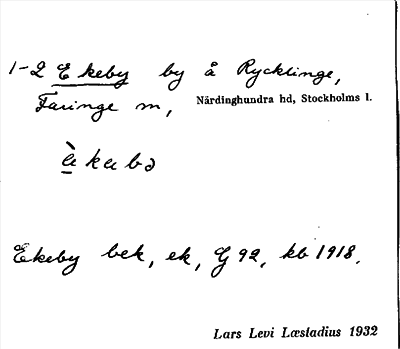 1-2 Ekeby by å Rycklinge,
Faringe sn, Närdinghundra hd, Stockholms l.
Ekeby bek, ek, G 92, kb 1918.
Lars Levi Læstadius 1932